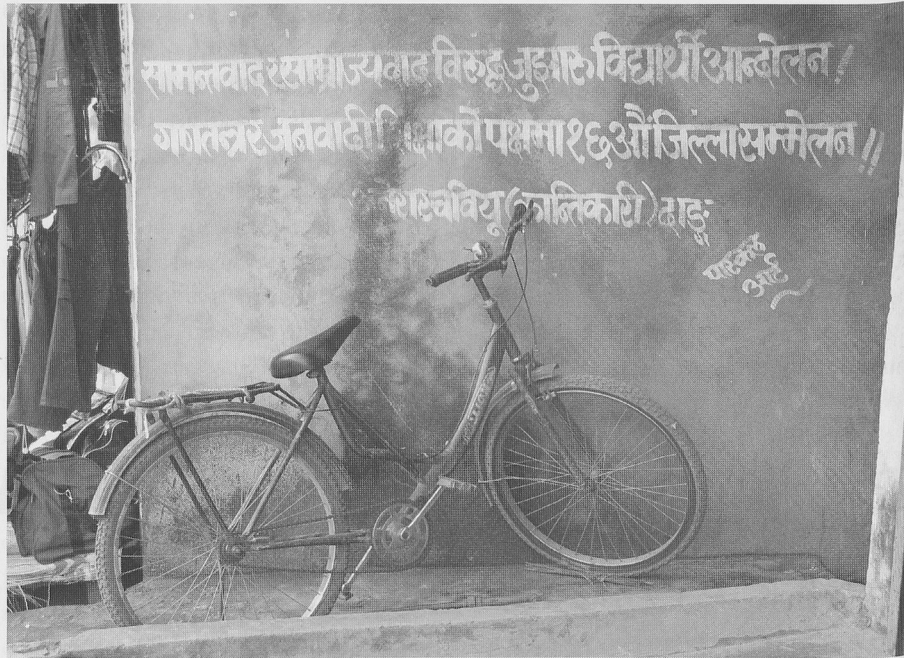 सामन्तवाद र साम्राज्यवाद विरूद्ध जुझारू विद्यार्थी आन्दोलन !
गणतन्त्र र जनवादी शिक्षाको पक्षमा १६औं जिल्ला सम्मेलन !!
(क्रान्तिकारी) दाङ
आर्ट